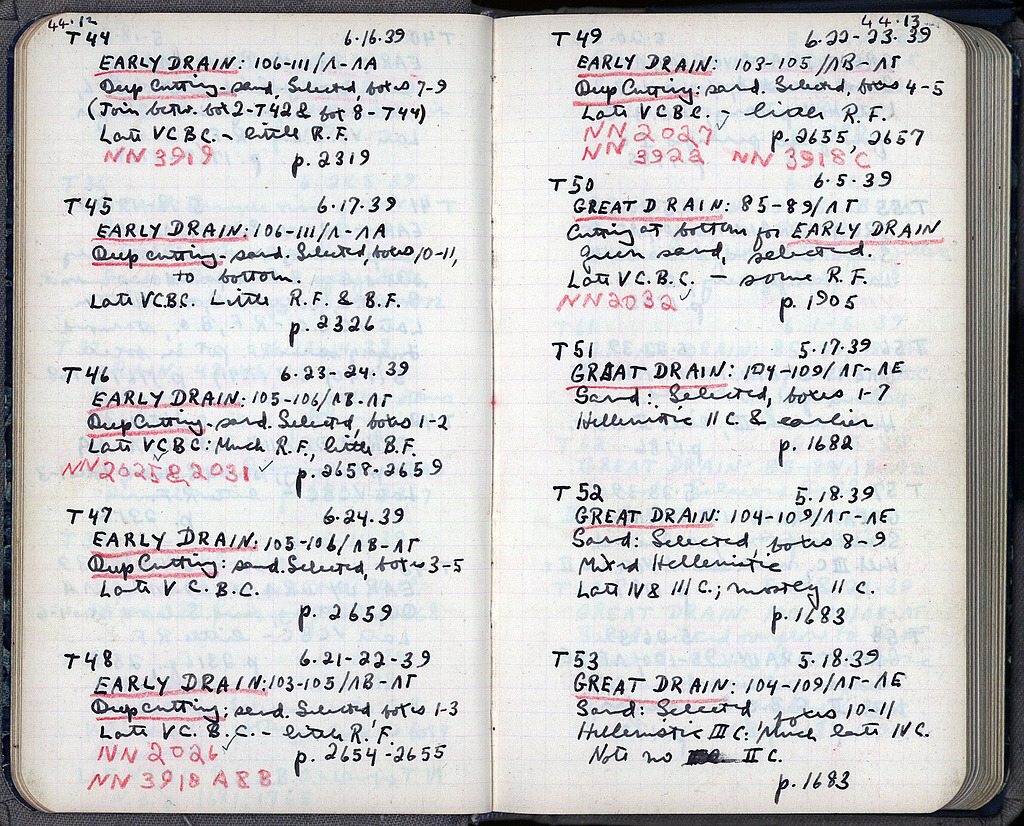 44.12
T 44 6.16.39
EARLY DRAIN: 106-111/Λ-ΛA
Deep Cutting - sand, Selected, boxes 7-9
(Join betw. box 2-T42 & box 8-T44)
Late V C. B.C. - little R.F.
NN 3919 p. 2319
T 45 6.17.39
EARLY DRAIN: 106-111/Λ-ΛA
Deep cutting - sand. Selected, boxes 10-11,
to bottom.
Late V C. B.C. Little R.F. & B.F.
p. 2326
T 46 6.23-24.39
EARLY DRAIN: 105-106/ΛB-ΛΓ
Deep Cutting - sand. Selected, boxes 1-2
Late V C. B.C.: Much R.F., little B.F.
NN 2025 & 2031 ✓ p. 2658-2659
T 47 6.24.39
EARLY DRAIN: 105-106/ΛB-ΛΓ
Deep Cutting: sand. Selected, boxes 3-5
Late V C. B.C.
p. 2659
T 48 6.21-22-39
EARLY DRAIN: 103-105/ΛB-ΛΓ
Deep cutting: sand. Selected, boxes 1-3
Late V C. B.C. - little R.F.
NN 2026 ✓ p. 2654-2655
NN 3918 A & B
44.13
T 49 6.22-23.39
EARLY DRAIN: 103-105/ΛB-ΛΓ
Deep Cutting: sand. Selected, boxes 4-5
Late V C. B.C. - little R.F.
NN 2027 ✓ p. 2655, 2657
NN 3922 NN 3918 C
T 50 6.5.39
GREAT DRAIN: 85-89/ΛΓ
Cutting at bottom for EARLY DRAIN
Green sand, selected.
Late V C. B.C. - some R.F.
NN 2032 ✓ p. 1905
T 51 5.17.39
GREAT DRAIN: 104-109/ΛΓ-ΛE
Sand: Selected, boxes 1-7
Hellenistic II C. & earlier
p. 1682
T 52 5.18.39
GREAT DRAIN: 104-109/ΛΓ-ΛE
Sand: Selected, boxes 8-9
Mixed Hellenistic
Late IV & III C.; mostly II C.
p. 1683
T 53 5.18.39
GREAT DRAIN: 104-109/ΛΓ-ΛE
Sand: Selected, boxes 10-11
Hellenistic III C: Much late IV C.
Note no II C.
p. 1683